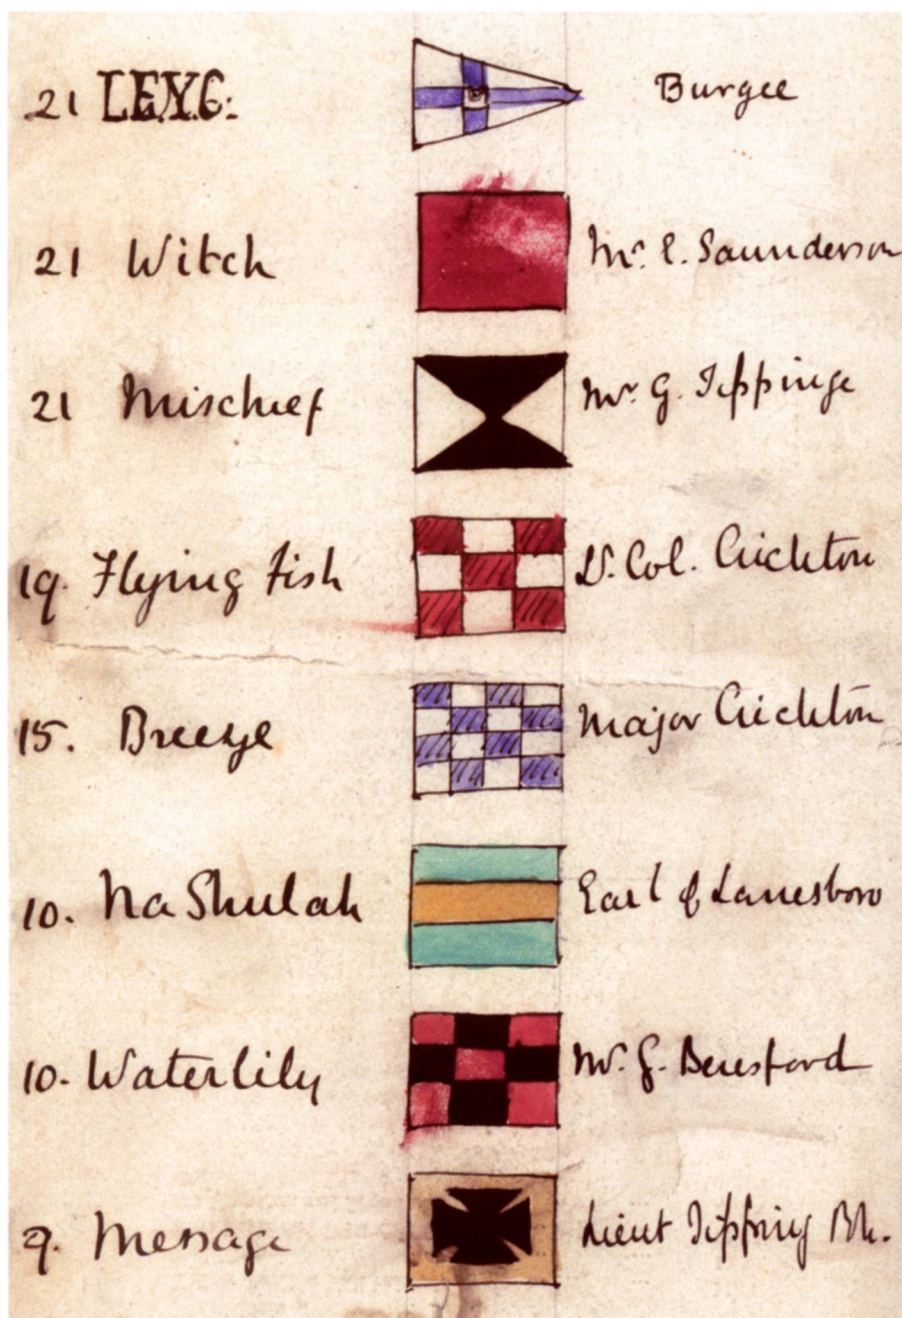 21 L.E.Y.C. Burgee
21 Witch Mr. E. Saunderson
21 Mischief Mr. G. Tippinge
19. Flying Fish Lt. Col. Crichton
15. Breeze Major Crichton
10. Na Shulah Earl of Lanesboro
10. Waterlily Mr. G. Beresford
9. Message Lieut Tipping